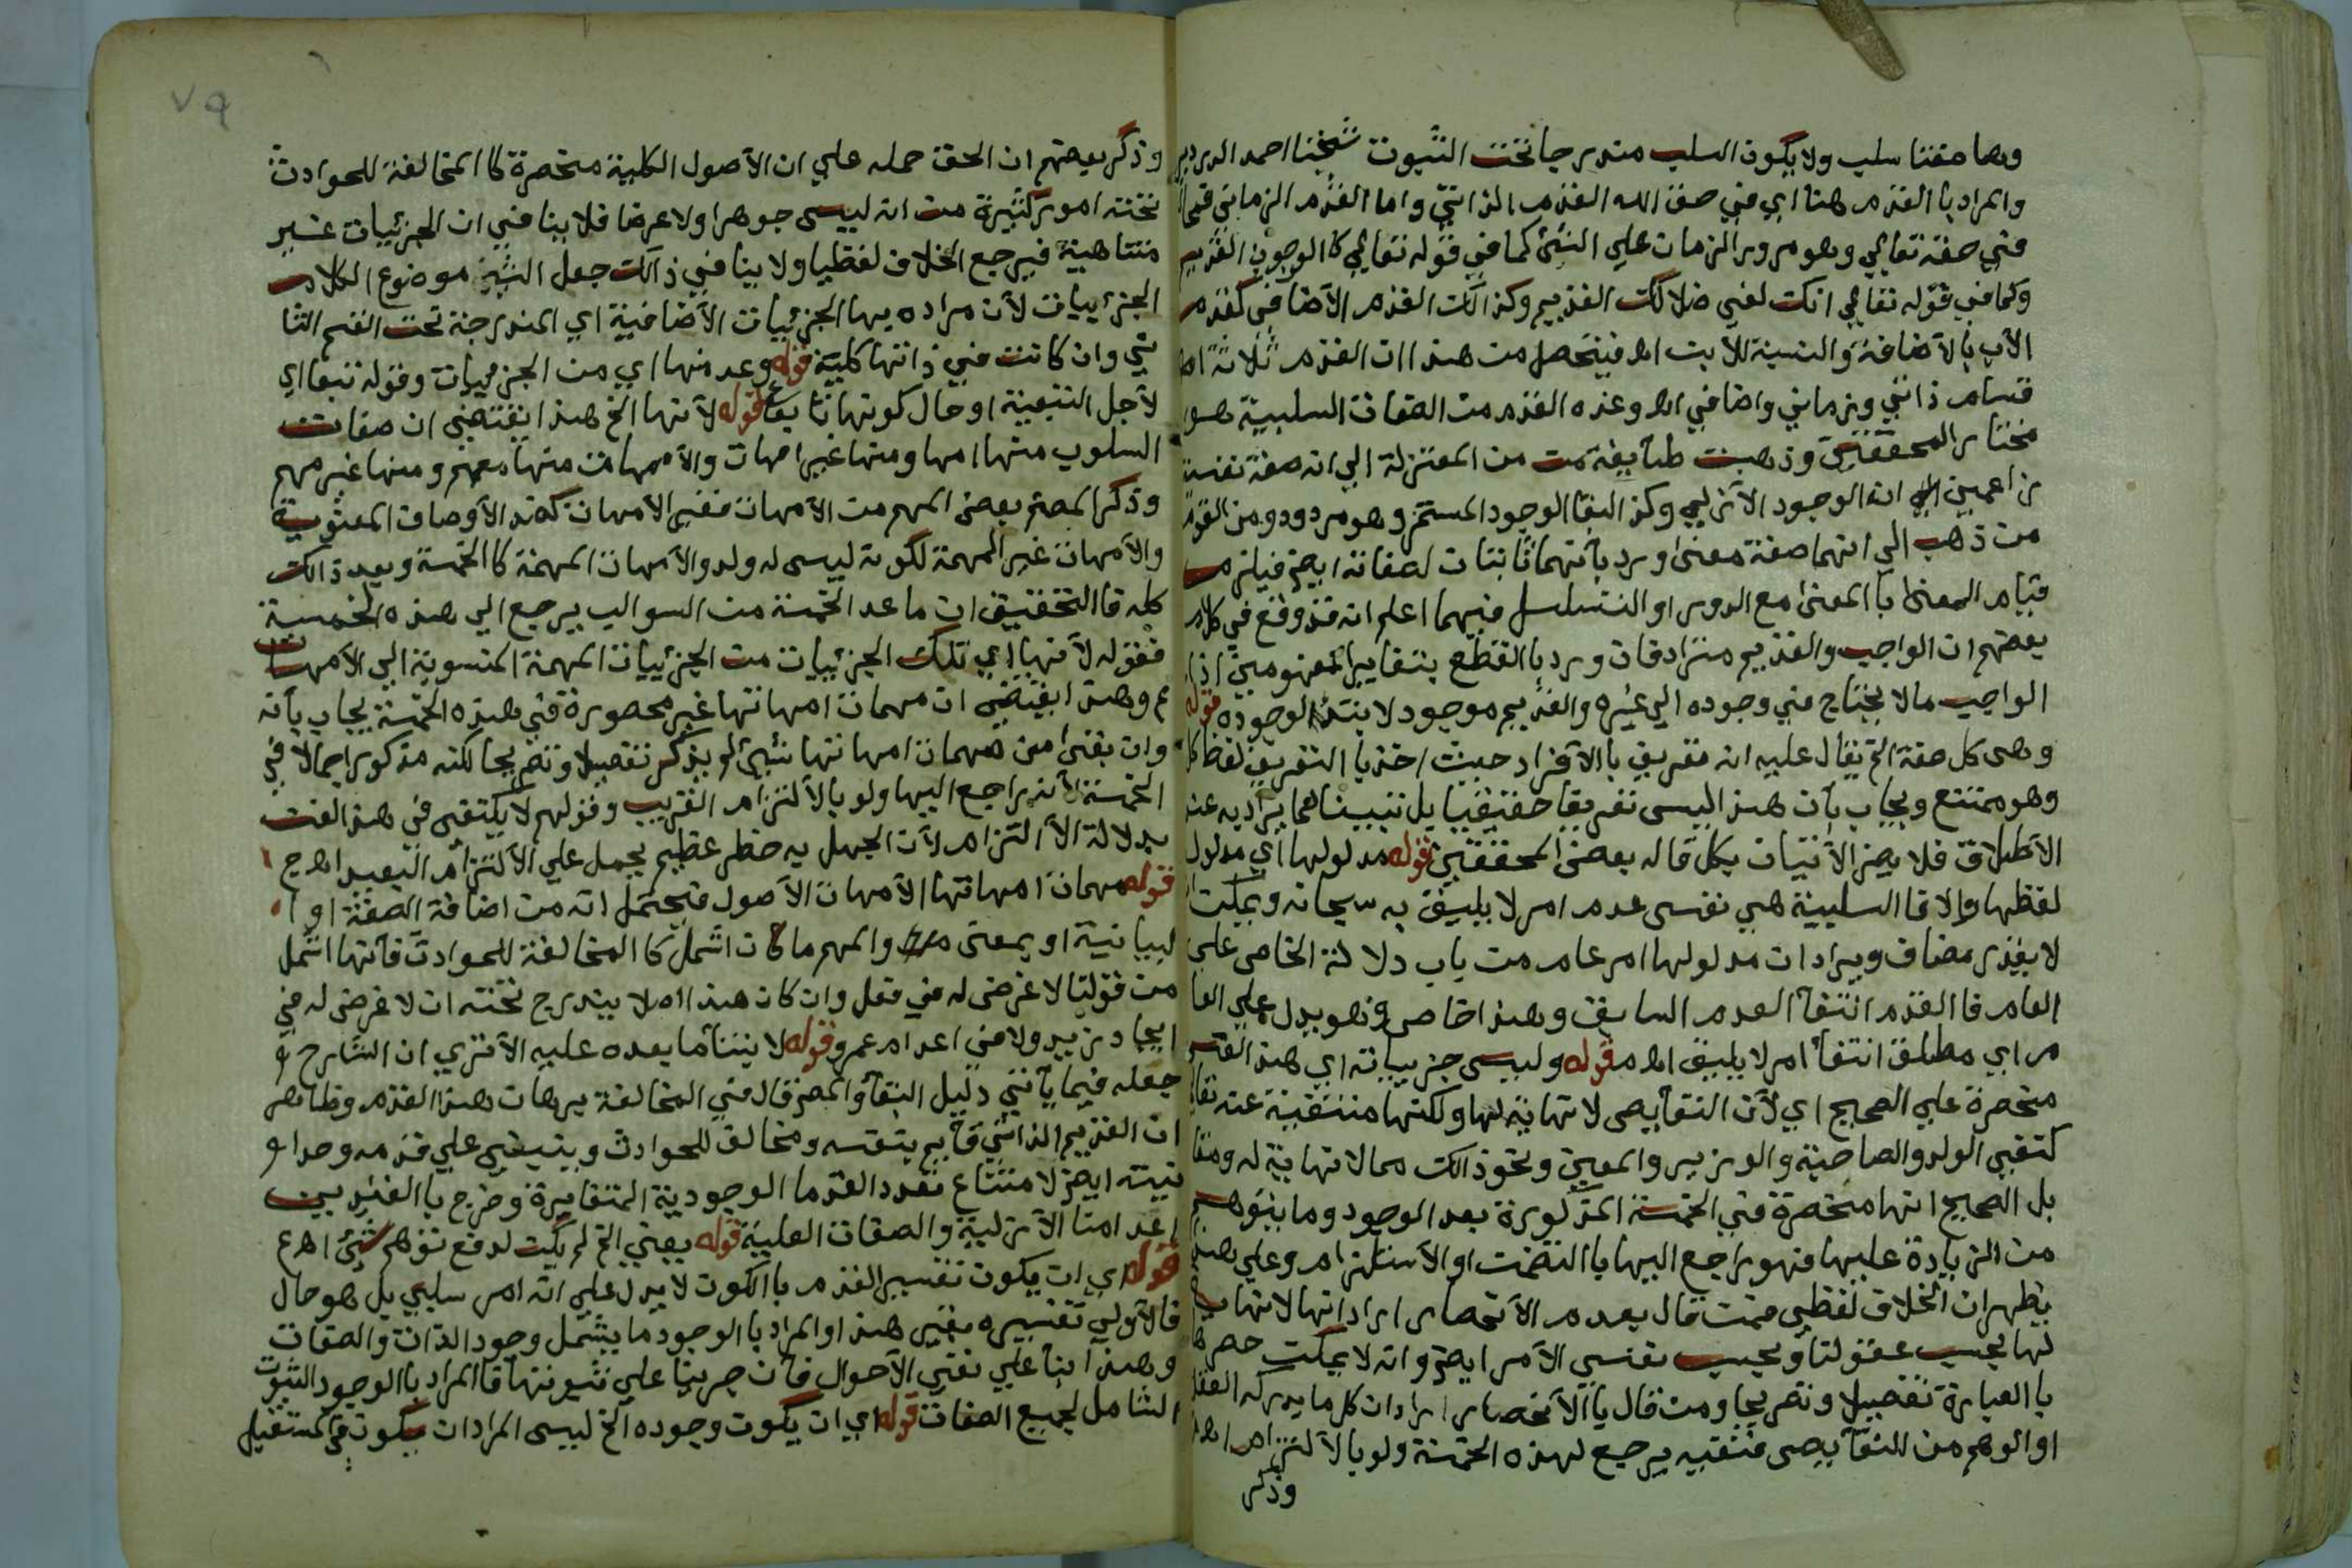 وهما صفتا سلب ولا يكون السلب مندرجا تحت الثبوت شيخنا احمد الدردير
والمراد با القدم هنا اي في صفة الله القدم الذاتي واما القدم الزماني فمحال
في صفته تعالي وهو مرور الزمان علي الشئ كما في قوله تعالي كا العرجون القديم
وكما في قوله تعالي انك لفي ضلالك القديم وكذالك القدم الاضافى كقدم
الاب بالاضافة والنسبة للابن اهـ فيتحصل من هذا ان القدم ثلاثة ا
قسام ذاتي وزماني واضافي اهـ وعده القدم من الصفات السلبية هو
مختار المحققين وذهبت طايفة من المعتزلة الي انه صفة نفسية
زاعمين انه الوجود الازلي وكذ البقا الوجود المستمر وهو مردود ومن القوم
من ذهب الي انهما صفة معنى ورد بانهما ثابتان لصفاته ايضا فيلزم
قيام المعنى با المعنى مع الدور او التسلسل فيهما اعلم انه قد وقع في كلام
بعضهم ان الواجب والقديم مترادفان ورد با القطع بتغاير المفهومين اذ
الواجب مالا يحتاج في وجوده الي غيره والقديم موجود لا ابتدا لوجوده قوله
وهى كل صفة الخ يقال عليه انه تعريف با الافراد حيث اخذ با التعريف لفظ كل
وهو ممتنع ويجاب بان هذا ليس تعريفا حقيقيا بل تبيينا لما يراد به عند
الاطلاق فلا يضر الاتيان بكل قاله بعض المحققين قوله مدلولها اي مدلول
لفظها والا فا السلبية هي نفس عدم امر لا يليق به سبحانه ويمكن ا
لا يقدر مضاف ويراد ان مدلولها امر عام من باب دلالة الخاص علي
العام فا القدم انتفا العدم السابق وهذا خاص فهو يدل علي العا
م اي مطلق انتفا امر لا يليق اهـ م قوله وليس جزيياته اي هذا القسم
منحصرة علي الصحيح اي لان النقايص لا نهاية لها وكلها منتفية عنه تعالي
كنفي الولد والصاحبة والوزير والمعين ونحو ذالك مما لا نهاية له ومقا
بل الصحيح انها منحصرة في الخمسة المذكورة بعد الوجود وما يتوهم
من الزيادة عليها فهو راجع اليها با التضمن او الاستلزام وعلي هذا
يظهر ان الخلاف لفظي فمن قال بعدم الانحصار اراد انها لا نهاية
لها بحسب عقولنا وبحسب نفس الامر ايضا وانه لا يمكن حصرها
با العبارة تفصيلا وتصريحا ومن قال بالانحصار اراد ان كل ما يدركه العقل
او الوهم من النقايص فنفيه يرجع لهذه الخمسة ولو بالالتزام اهـ
وذكر
٧٩
وذكر بعضهم ان الحق حمله علي ان الاصول الكلية منحصرة كا المخالفة للحوادث
تحته امور كثيرة من انه ليس جوهرا ولا عرضا فلا ينافي ان الجزئيات غير
متناهية فيرجع الخلاف لفظيا ولا ينافي ذالك جعل موضوع الكلام
الجزئييات لان مراده بها الجزئييات الاضافية اي المندرجة تحت القسم الثا
ني وان كانت في ذاتها كلية قوله وعد منها اي من الجزئيات وقوله تبعا اي
لاجل التبعية او حال كونها تابعا قوله لانها الخ هذا يقتضي ان صفات
السلوب منها امها ومنها غير امهات والامهات منها مهم ومنها غير مهم
وذكر المص بعض المهم من الامهات فغير الامهات الاوصاف
والامهات غير المهمة لكونه ليس له ولد والامهات المهمة كا الخمسة وبعد ذالك
كله فا التحقيق ان ما عدا الخمسة من السوالب يرجع الي هذه الخمسة
فقوله لانها اي تلك الجزئييات من الجزئييات المهمة المنسوبة الي الامهات
م وهذا يقتضي ان مهمات امهاتها غير محصورة في هذه الخمسة يجاب بانه
وان بقي من مهمات امهاتها شئ لم يذكر تفصيلا وتصريحا لكنه مذكور اجمالا في
الخمسة لانه راجع اليها ولو بالالتزام القريب وقولهم لا يكتفى في هذا الفن
بدلالة الا التزام لان الجهل به خطر عظيم يحمل علي الالتزام البعيد اهـ ج
قوله مهمات امهاتها الامهات الاصول فيحتمل انه من اضافة الصفة او ا
لبيانية او بمعنى من والمهم ما كان اشمل كا المخالفة للحوادث فانها اشمل
من قولنا لا غرض له في فعل وان كان هذا اصلا يندرج تحته ان لا غرض له في
ايجاد زيد ولا في اعدام عمرو قوله لا يتنا ما بعده عليه الا ترى ان الشارح
جعله فيما ياتي دليل البقا والمص قال في المخالفة برهان هذا القدم وظاهر
ان القديم الذاتي قايم بنفسه ومخالف للحوادث وينبني علي قدمه وحدا
نيته ايضا لامتناع تعدد القدما الوجودية المتغايرة وخرج با القيدين
اعدامنا الازلية والصفات العلية قوله يعني الخ لم يكن لدفع توهم شئ اهـ ع
قوله اي ان يكون تفسير القدم با الكون لا يدل علي انه امر سلبي بل هو حال
فالاولي تفسيره بغير هذا او المراد با الوجود ما يشمل وجود الذات والصفات
وهذا بنا علي نفي الاحوال فان جرينا علي ثبوتها فا المراد با الوجود الثبوت
الشامل لجميع الصفات قوله اي ان يكون وجوده الخ ليس المراد ان يكون في المستقبل